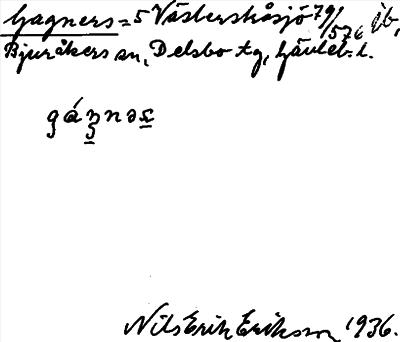 Gagners = 5 Västerstråsjö 79/576 jb,
Bjuråkers sn, Delsbo tg, Gävleb. l.
gáŋnəs
Nils Erik Eriksson 1936.